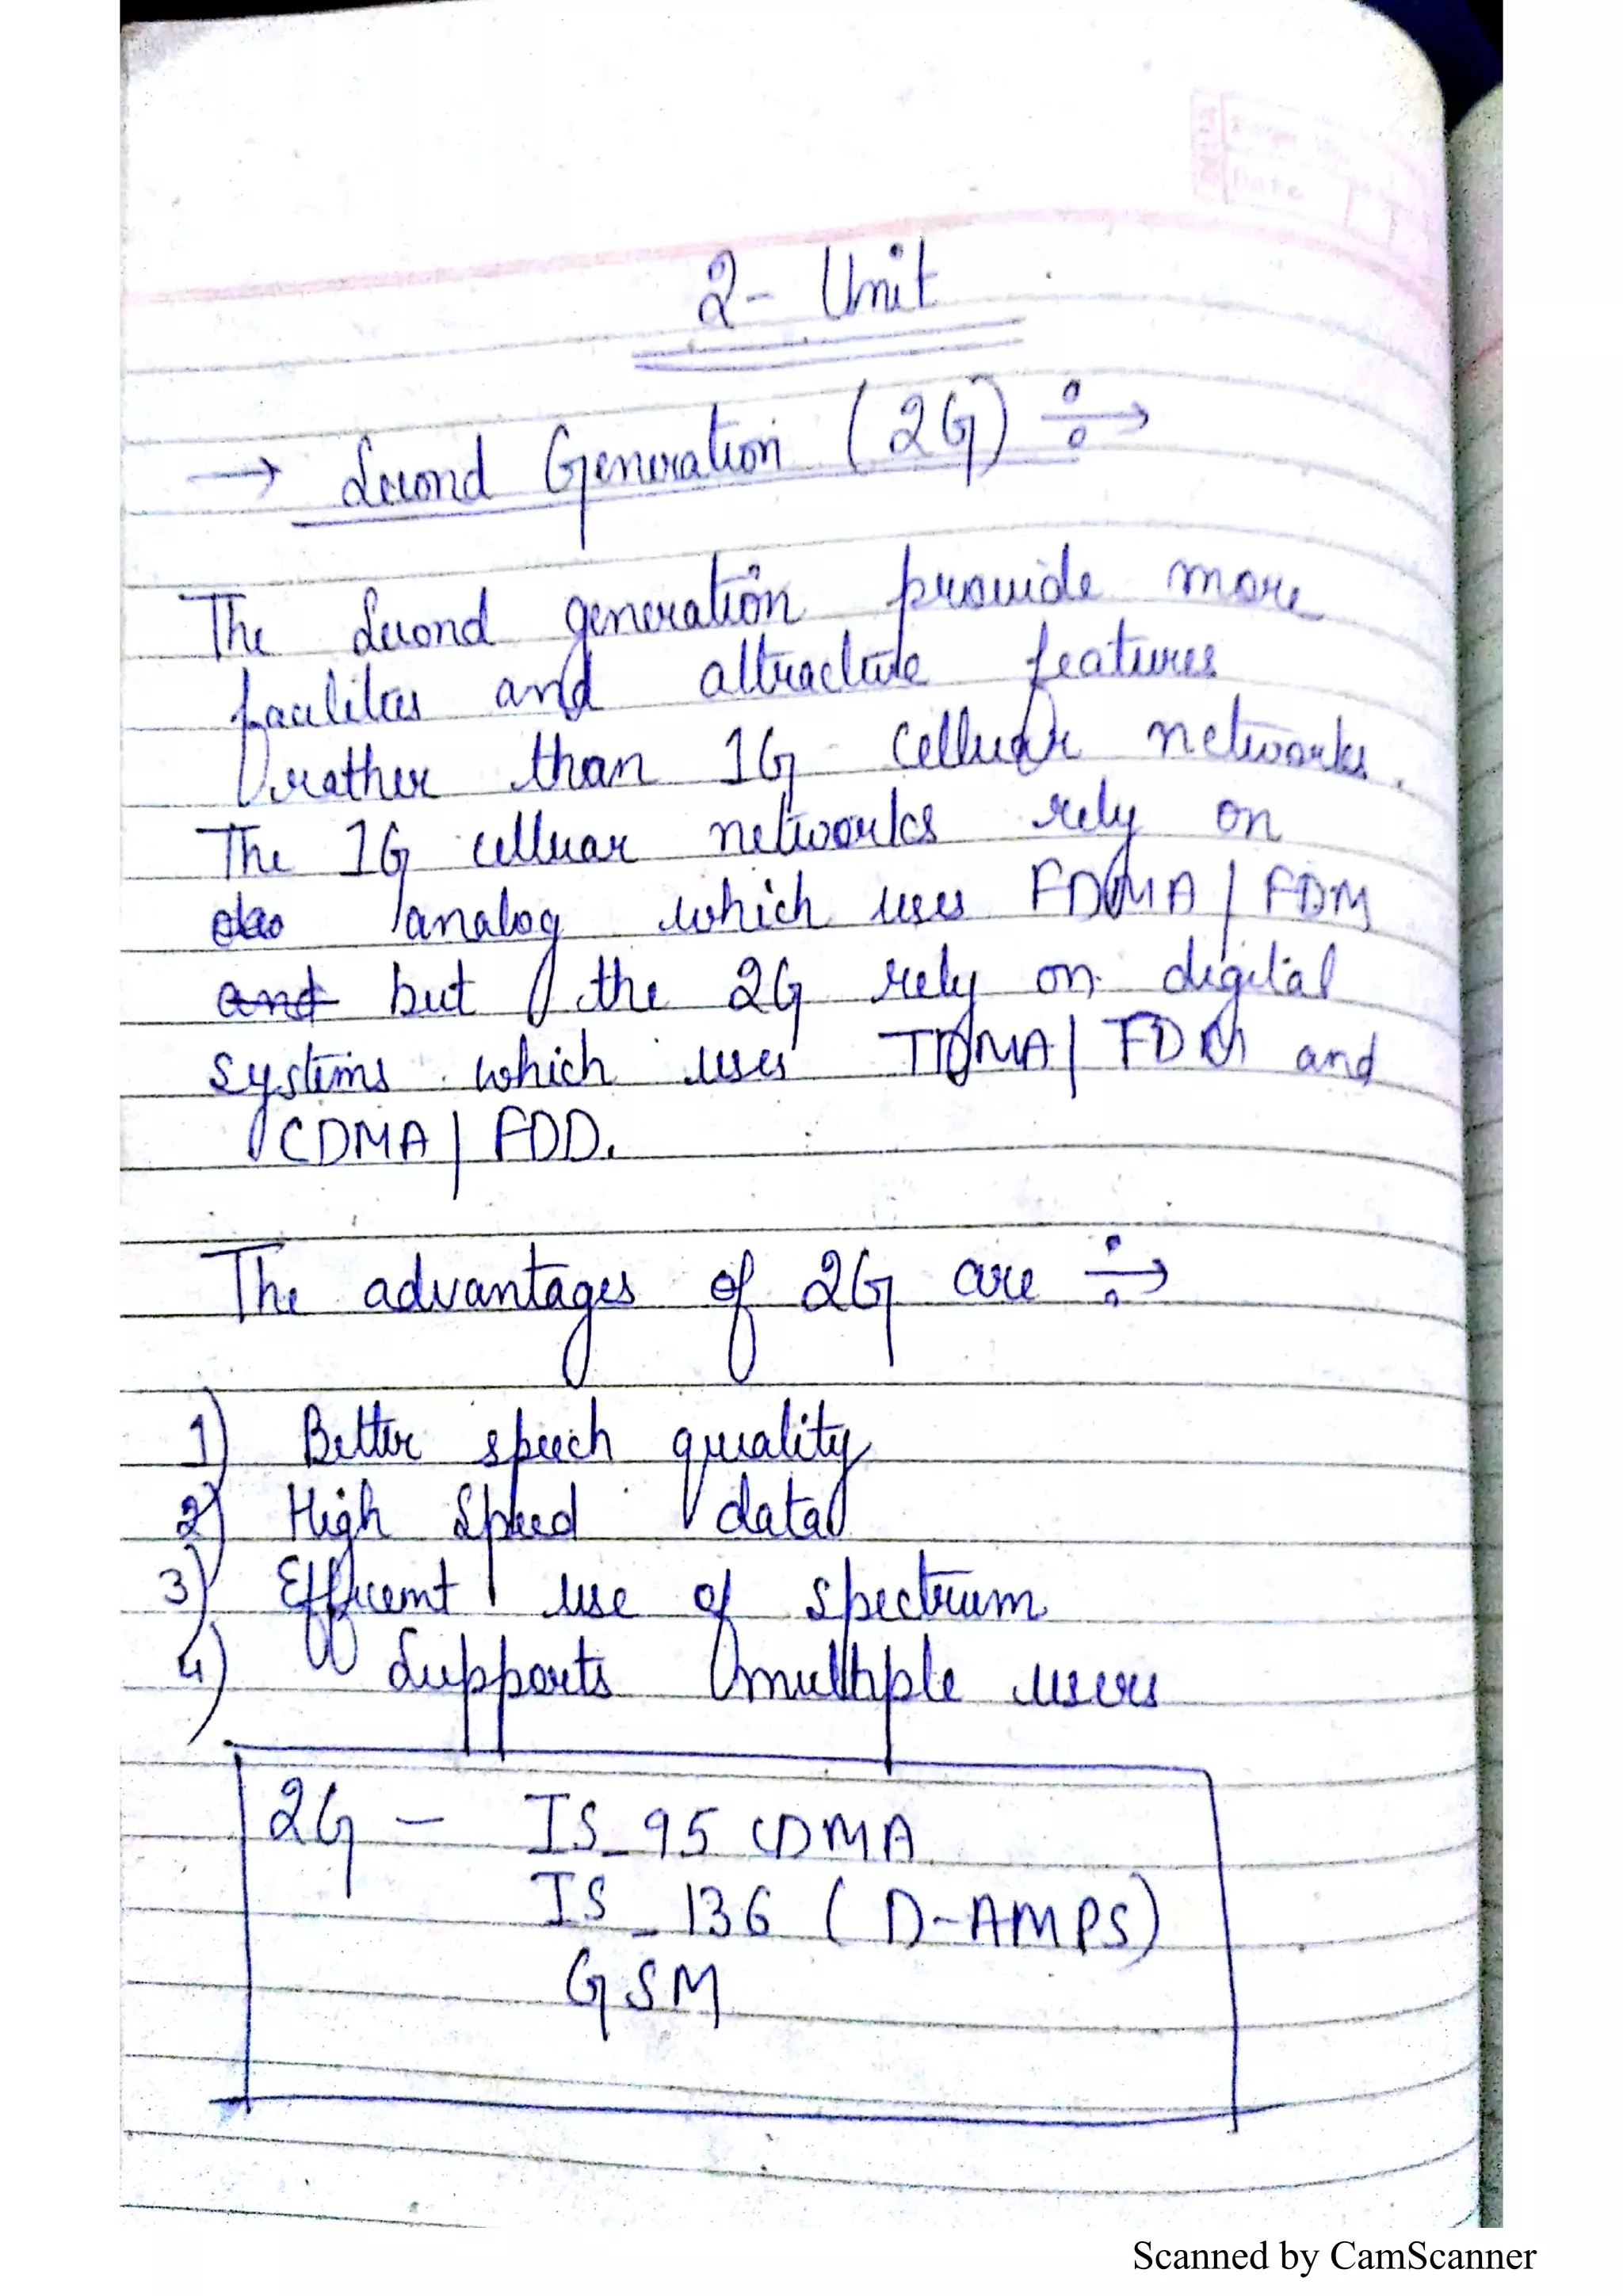 2- Unit
→ Second Generation (2G) ÷→
The Second generation provide more
facilites and attractive features
rather than 1G Celluar networks.
The 1G celluar networks rely on
analog which uses FDMA / FDM
and but the 2G rely on digital
systems which uses TDMA / FDM and
CDMA / FDD.
The advantages of 2G are ÷→
1) Better speech quality
2) High Speed data
3) Efficient use of spectrum
4) Supports multiple users
2G - IS_95 CDMA
IS_136 (D-AMPS)
GSM
Scanned by CamScanner